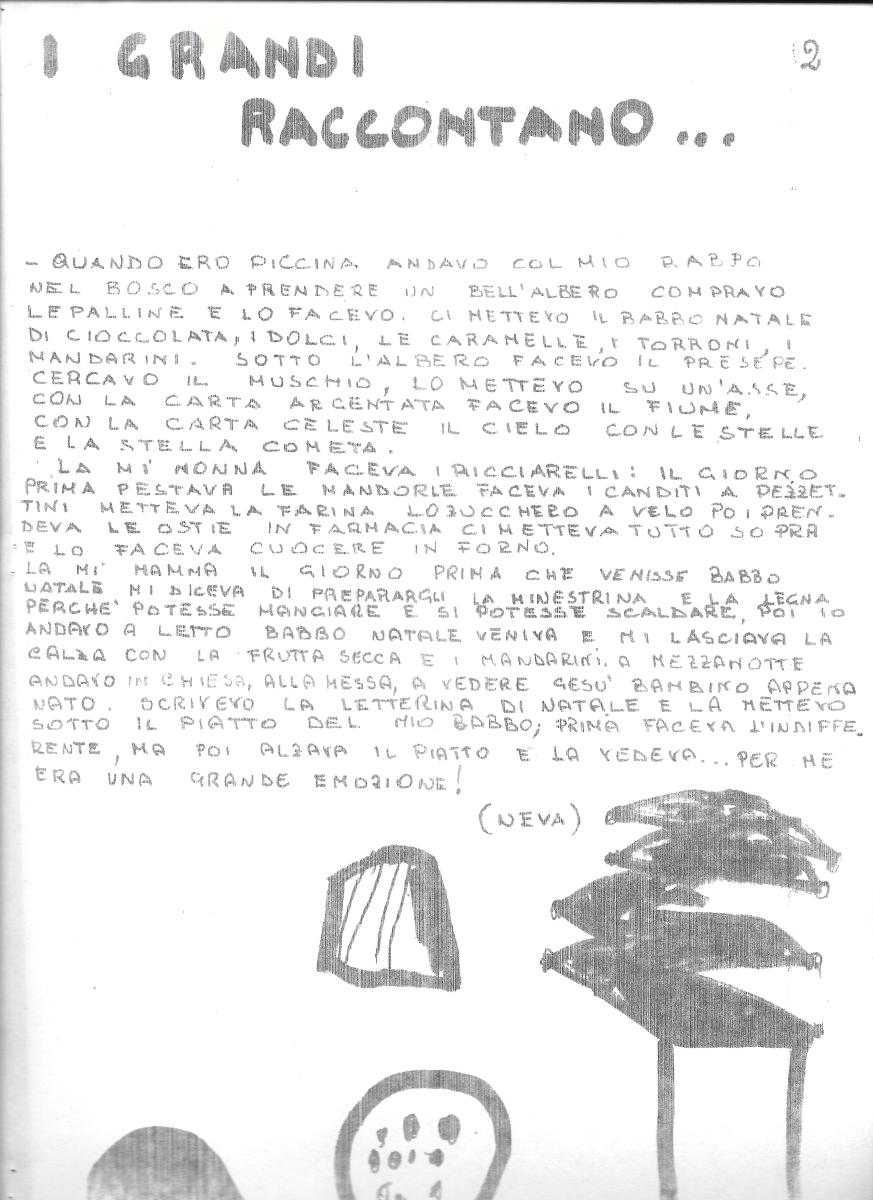 I GRANDI
2
RACCONTANO...
- QUANDO ERO PICCINA ANDAVO COL MIO BABBO
NEL BOSCO A PRENDERE UN BELL'ALBERO COMPRAVO
LE PALLINE E LO FACEVO. CI METTEVO IL BABBO NATALE
DI CIOCCOLATA, I DOLCI, LE CARAMELLE, I TORRONI, I
MANDARINI. SOTTO L'ALBERO FACEVO IL PRESEPE.
CERCAVO IL MUSCHIO, LO METTEVO SU UN'ASSE,
CON LA CARTA ARGENTATA FACEVO IL FIUME,
CON LA CARTA CELESTE IL CIELO CON LE STELLE
E LA STELLA COMETA.
LA MI' NONNA FACEVA I RICCIARELLI: IL GIORNO
PRIMA PESTAVA LE MANDORLE FACEVA I CANDITI A PEZZET-
TINI METTEVA LA FARINA LO ZUCCHERO A VELO POI PREN-
DEVA LE OSTIE IN FARMACIA CI METTEVA TUTTO SOPRA
E LO FACEVA CUOCERE IN FORNO.
LA MI' MAMMA IL GIORNO PRIMA CHE VENISSE BABBO
NATALE MI DICEVA DI PREPARARGLI LA MINESTRINA E LA LEGNA
PERCHE' POTESSE MANGIARE E SI POTESSE SCALDARE, POI IO
ANDAVO A LETTO BABBO NATALE VENIVA E MI LASCIAVA LA
CALZA CON LA FRUTTA SECCA E I MANDARINI. A MEZZANOTTE
ANDAVO IN CHIESA, ALLA MESSA, A VEDERE GESU' BAMBINO APPENA
NATO. SCRIVEVO LA LETTERINA DI NATALE E LA METTEVO
SOTTO IL PIATTO DEL MIO BABBO; PRIMA FACEVA L'INDIFFE-
RENTE, MA POI ALZAVA IL PIATTO E LA VEDEVA... PER ME
ERA UNA GRANDE EMOZIONE!
(NEVA)